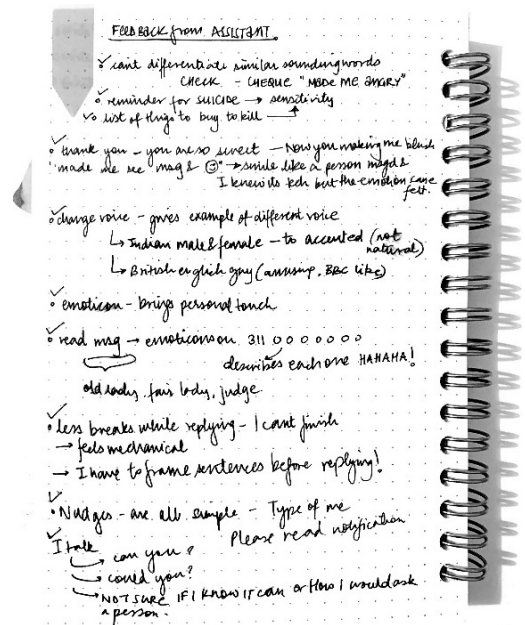 FEEDBACK from ASSISTANT.
• can't differentiate similar sounding words
CHECK - CHEQUE "MADE ME ANGRY"
• reminder for SUICIDE → sensitivity
• list of things to buy to kill
• thank you - you are so sweet - Now you making me blush
"made me see msg & ☺" → smile like a person msgd &
I knew its tech but the emotion came
felt.
• change voice - gives example of different voice
↳ Indian male & female - to accented (not
natural)
↳ British english guy (amusing, BBC like)
• emoticon - brings personal touch
• read msg → emoticons on 311 0 0 0 0 0 0 0
describes each one HAHAHA!
old lady, fair lady, judge
• less breaks while replying - I cant finish
→ feels mechanical
→ I have to frame sentences before replying!
• Nudges - are all simple - Type of me
Please read notification
I talk
→ can you?
→ could you?
→ NOT SURE IF I KNOW IT CAN or HOW I would ask
a person.